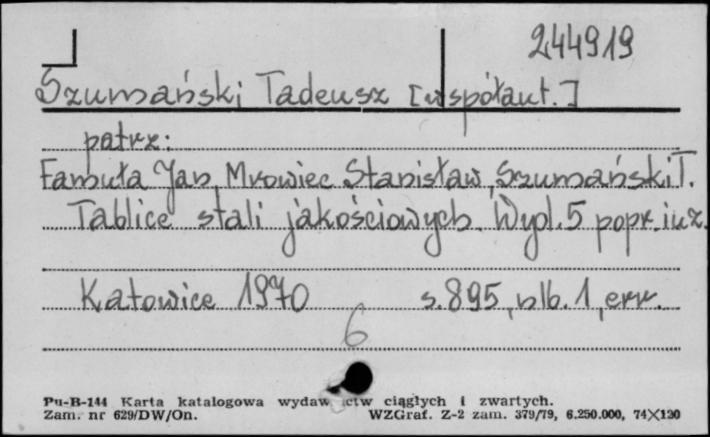 244919
Szumański Tadeusz [współaut.]
patrz:
Famuła Jan, Mrowiec Stanisław, Szumański T.
Tablice stali jakościowych. Wyd. 5 popr. i uz.
Katowice 1970 s. 895, nlb. 1, err.
6
Pu-B-144 Karta katalogowa wydawnictw ciągłych i zwartych.
Zam. nr 629/DW/On. WZGraf. Z-2 zam. 379/79, 6.250.000, 74×120